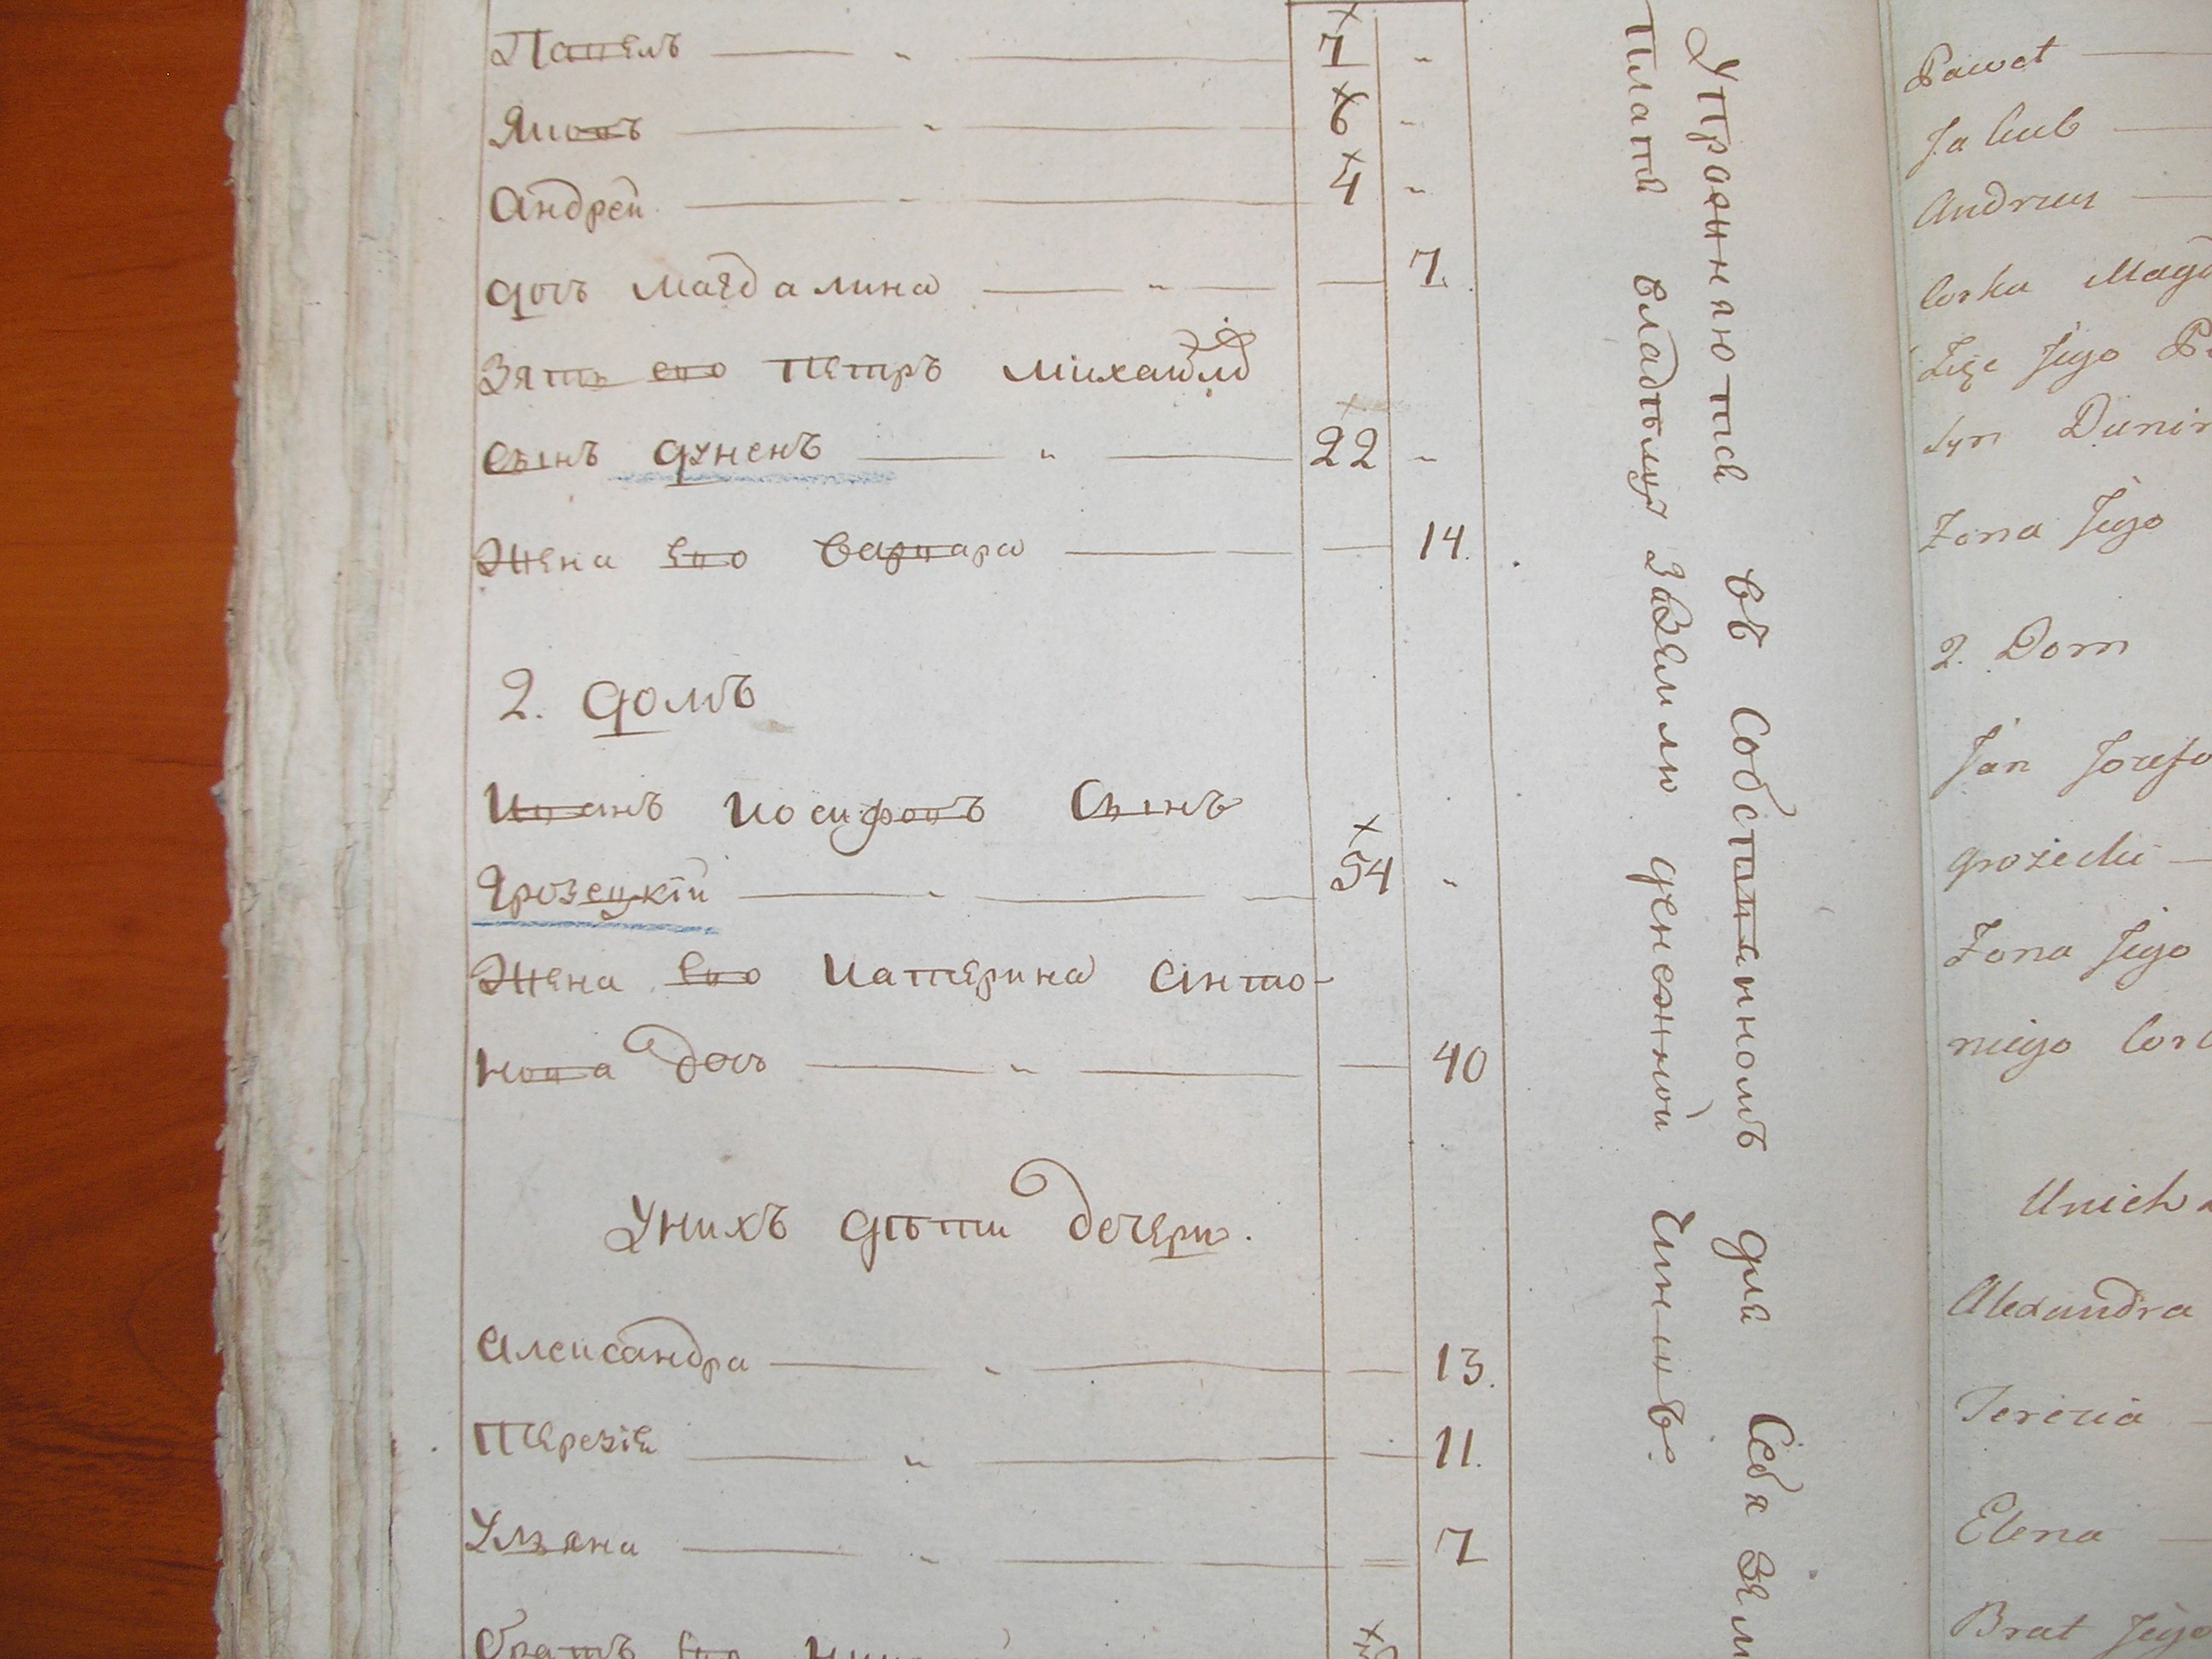 Павелъ — „ — 7 „
Яковъ — „ — 6 „
Андрей — „ — 4 „
дочь Магдалина — „ — — 7.
Зять его Петръ Михайлъ
Сынъ Дуненъ — „ — 22 „
Жена его Варвара — — 14.
2. Домъ
Иванъ Иосифовъ Сынъ
Грозецкій — „ — 54 „
Жена его Катерина Анто-
нова дочь — „ — — 40
У нихъ дѣти дочери.
Александра — „ — — 13.
Терезія — „ — — 11.
Ульяна — „ — — 7
братъ его
Упражняются въ Собственномъ для Себя
платя владѣльцу за землю денежной Чиншъ.
Paweł —
Jakub —
Andrzey —
Corka
Zięć Jego
Syn
Zona Jego
2. Dom
Jan
Grozecki —
Zona Jego
niego
Unich
Alexandra
Terezia
Elena —
Brat Jego